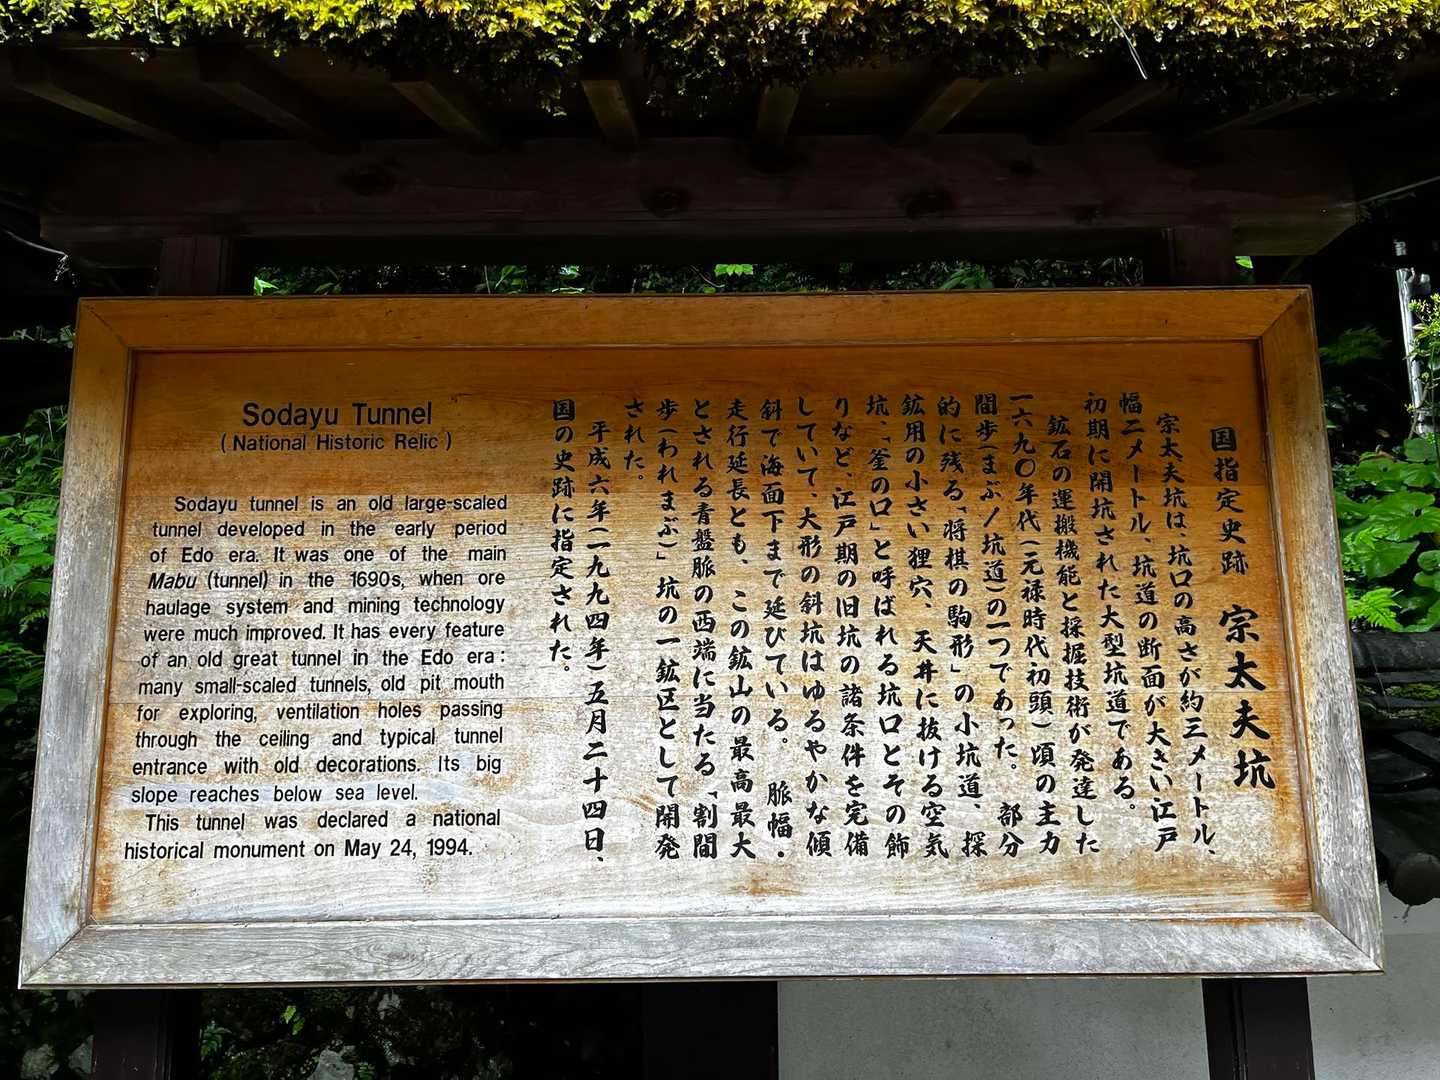 国指定史跡 宗太夫坑
宗太夫坑は、坑口の高さが約三メートル、
幅二メートル、坑道の断面が大きい江戸
初期に開坑された大型坑道である。
鉱石の運搬機能と採掘技術が発達した
一六九〇年代(元禄時代初頭)頃の主力
間歩(まぶ/坑道)の一つであった。 部分
的に残る「将棋の駒形」の小坑道、採
鉱用の小さい狸穴、天井に抜ける空気
坑、「釜の口」と呼ばれる坑口とその飾
りなど、江戸期の旧坑の諸条件を完備
していて、大形の斜坑はゆるやかな傾
斜で海面下まで延びている。 脈幅・
走行延長とも、この鉱山の最高最大
とされる青盤脈の西端に当たる「割間
歩(われまぶ)」坑の一鉱区として開発
された。
平成六年(一九九四年)五月二十四日、
国の史跡に指定された。
Sodayu Tunnel
( National Historic Relic )
Sodayu tunnel is an old large-scaled
tunnel developed in the early period
of Edo era. It was one of the main
Mabu (tunnel) in the 1690s, when ore
haulage system and mining technology
were much improved. It has every feature
of an old great tunnel in the Edo era :
many small-scaled tunnels, old pit mouth
for exploring, ventilation holes passing
through the ceiling and typical tunnel
entrance with old decorations. Its big
slope reaches below sea level.
This tunnel was declared a national
historical monument on May 24, 1994.